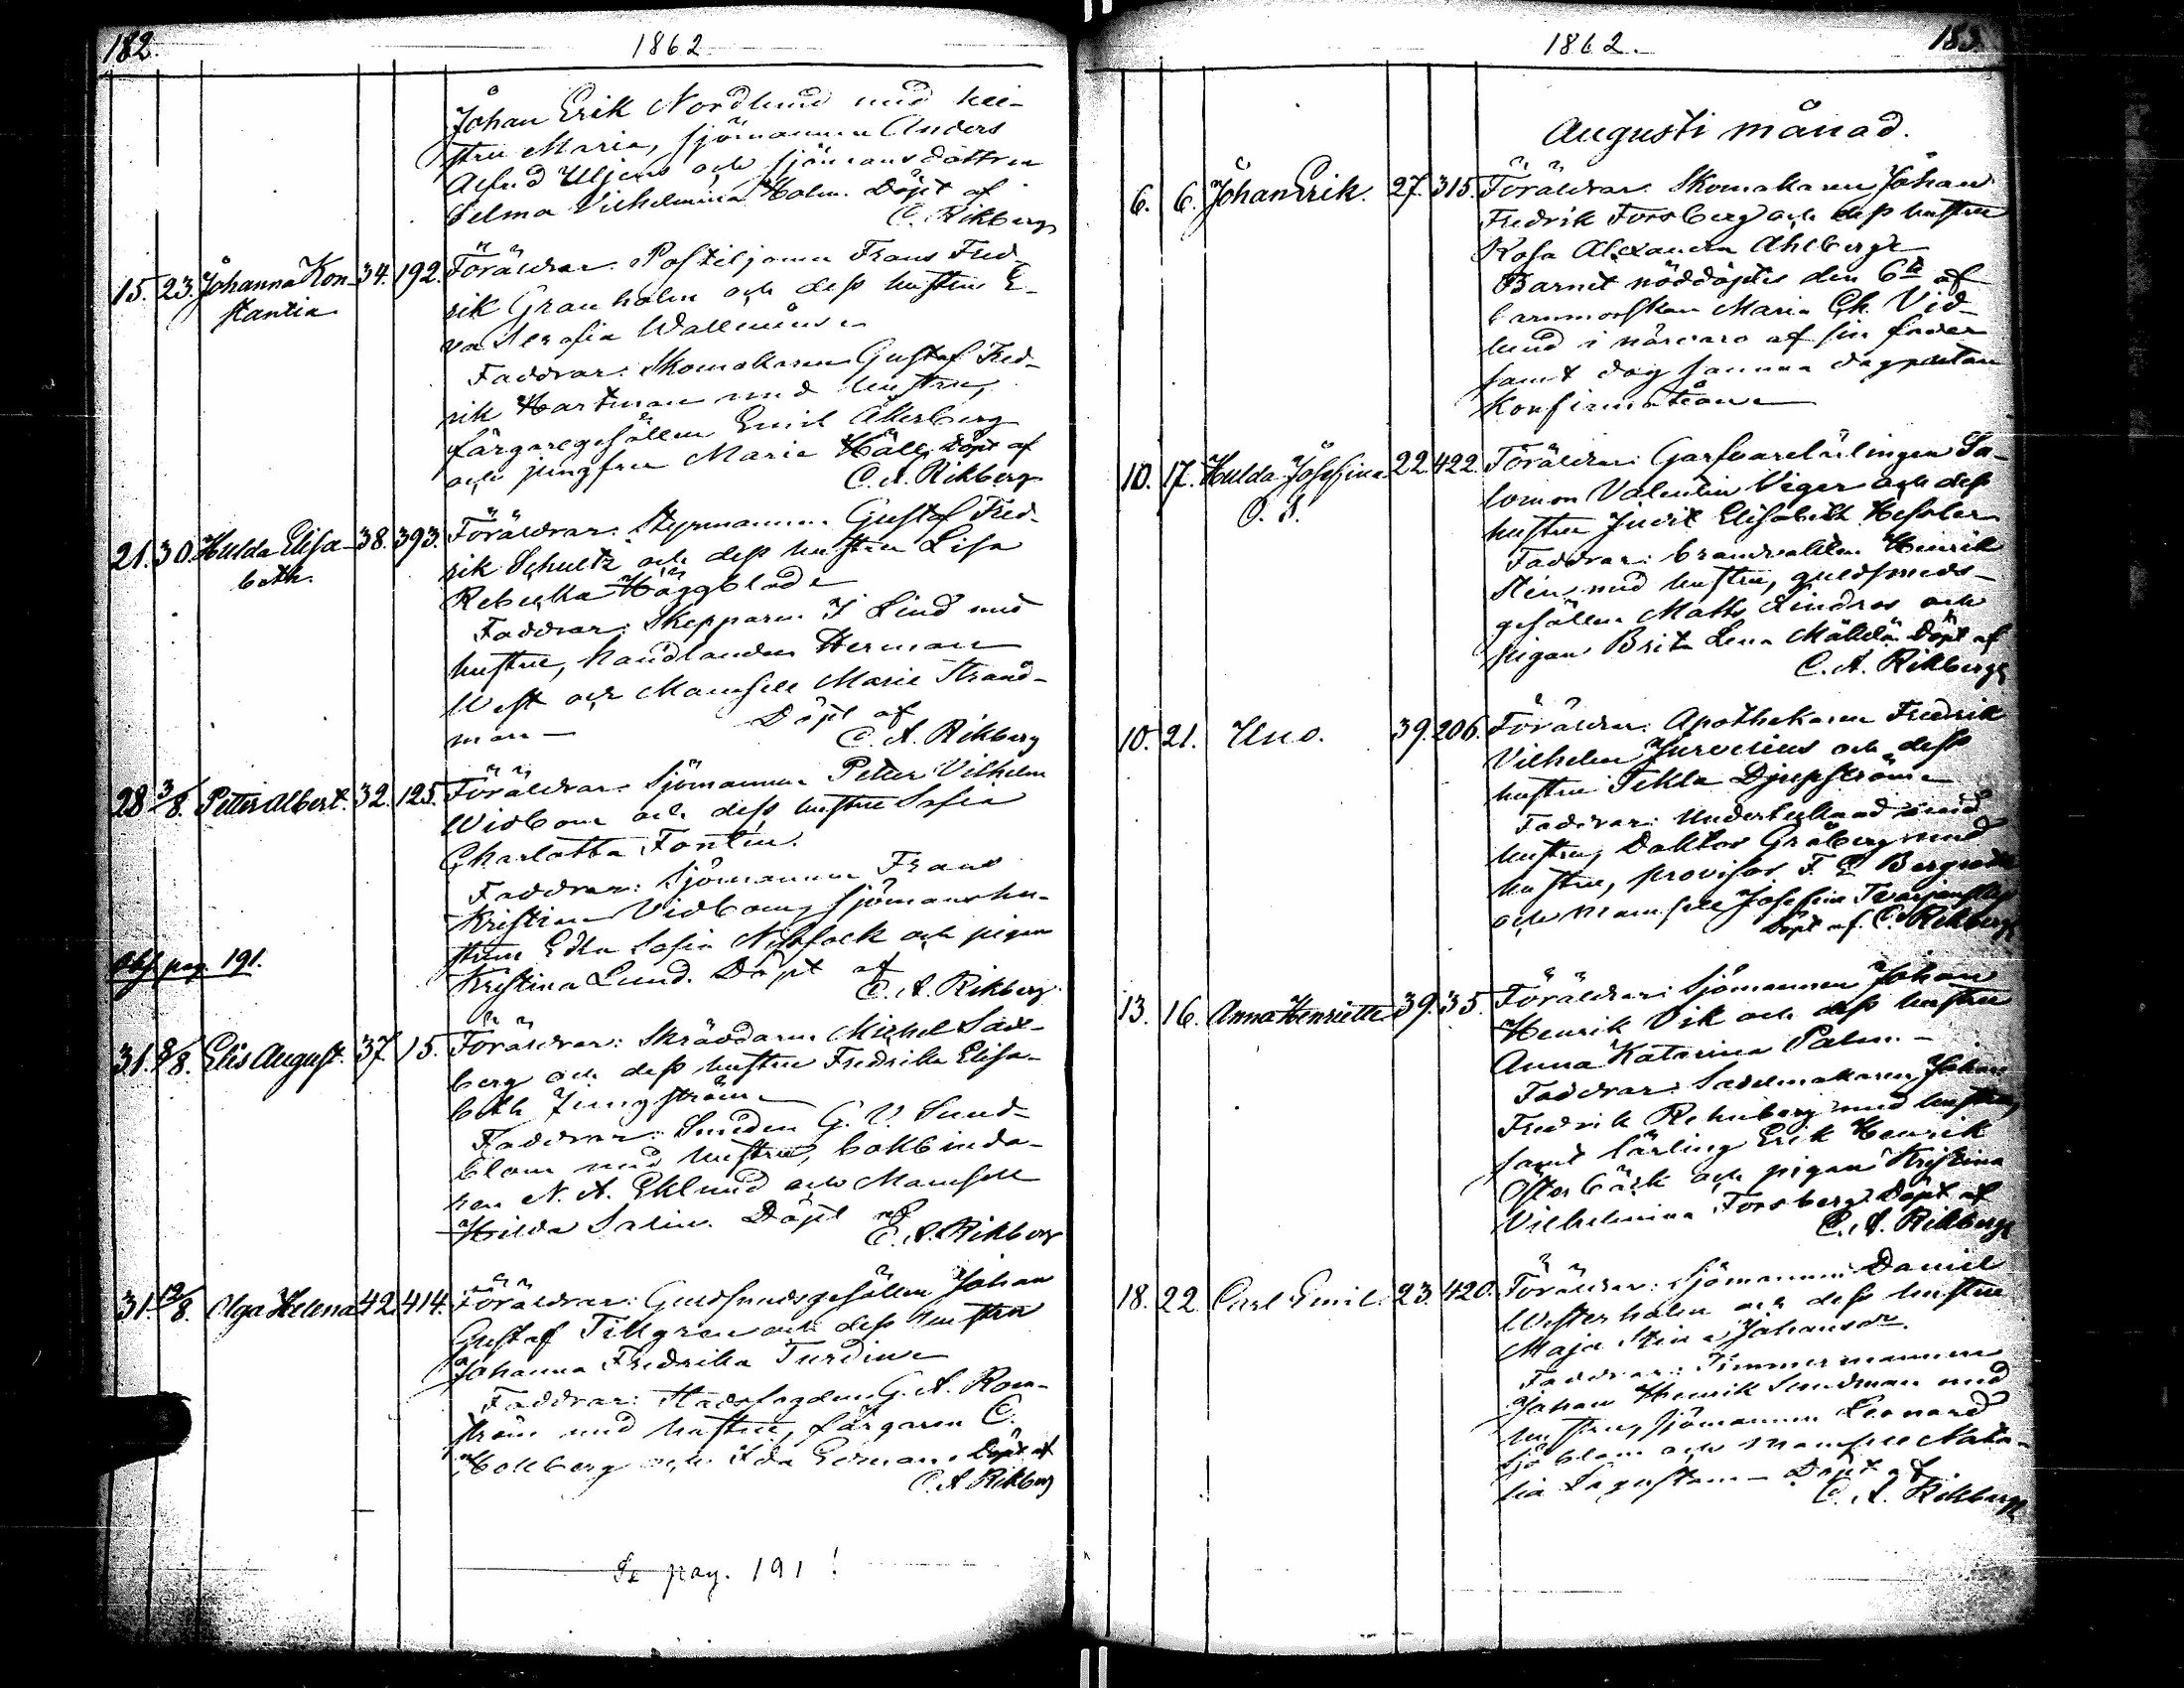 182.
1862
Johan Erik Nordlund med hu-
stru Maria, sjömannen Anders
Uljens och sjömansdottren
Selma Vilhelmina Holm. Döpt af
C. Rikberg
15. 23. Johanna Kon- 34. 192. Föräldrar: Postiljonen Frans Fred-
stantia
rik Granholm och dess hustru E-
va Serafia
Faddrar: Skomakaren Gustaf Fred-
rik Hartman med hustru,
färgaregesällen Emil Åkerberg
och jungfru Maria Häll. Döpt af
C. A. Rikberg
21. 30. Hulda Elisa- 38. 393. Föräldrar: Styrmannen Gustaf Fred-
beth.
rik Schultz och dess hustru Lisa
Rebecka Häggblad
Faddrar: Skepparen J Lind med
hustru, handlanden Herman
West och Mamsell Marie Strand-
man – Döpt af
C. A. Rikberg
28 3/8. Petter Albert. 32. 125. Föräldrar: Sjömannen Petter Vilhelm
Widbom och dess hustru Sofia
Charlotta Fontin.
Faddrar: Sjömannen Frans
Kristian Vidbom, sjömanshu-
strun Edla Sofia och pigan
Kristina Lund. Döpt af
C. A. Rikberg.
Obs. pag. 191.
31. 8/8. Elis August. 37. 15. Föräldrar: Skräddaren Michel Söder-
berg och dess hustru Fredrika Elisa-
beth Ljungström
Faddrar: Smeden G. V. Sund-
blom med hustru, bokbinda-
ren N. A. Eklund och Mamsell
Hilda Salin. Döpt af
C. A. Rikberg
31. 12/8. Olga Helena 42. 414. Föräldrar: Guldsmedsgesällen Johan
Gustaf Tillgren och dess hustru
Johanna Fredrika Turdin
Faddrar: Stadsfogden G. A. Rom-
ström med hustru, färgaren C.
Hollberg och Ida Edman. Döpt af
C. A. Rikberg
Se pag. 191!
1862.
183.
Augusti månad.
6. 6. Johan Erik. 27. 315. Föräldrar: Skomakaren Johan
Fredrik Forsberg och dess hustru
Rosa Alexandra Ahlberg
Barnet nöddöptes den 6te af
barnmorskan Maria Ch. Vid-
lund i närvaro af sin fader
samt dog samma dag utan
Konfirmation
10. 17. Hulda Josefina 22. 422. Föräldrar: Garfvarelärlingen Sa-
O. S.
lomon Valentin Viger och dess
hustru Judit Elisabeth Hesler
Faddrar: brandvakten Henrik
Sten med hustru, guldsmeds-
gesällen Matts Lindros och
pigan Brita Lena Mäkelä. Döpt af
C. A. Rikberg
10. 21. Uno. 39. 206. Föräldrar: Apothekaren Fredrik
Vilhelm Jurvelius och dess
hustru Tekla Djupström
Faddrar: med
hustru, Doktor Gråberg med
hustru, provisor F. E. Bergroth
och Mamsell Josefina
Döpt af C. A. Rikberg
13. 16. Anna Henriette 39. 35. Föräldrar: Sjömannen Johan
Henrik Vik och dess hustru
Anna Katarina Palm. –
Faddrar: Sadelmakaren Johan
Fredrik Rehnberg med hustru,
samt lärling Erik Henrik
Österbäck och pigan Kristina
Vilhelmina Forsberg. Döpt af
C. A. Rikberg
18. 22. Carl Emil. 23. 420. Föräldrar: Sjömannen Daniel
Westerholm och dess hustru
Maja Stina Johansdr.
Faddrar: Timmermannen
Johan Henrik Sundman med
hustru, sjömannen Leonard
Sjöblom och Mamsell Nata-
lia Segerstam – Döpt af
C. A. Rikberg